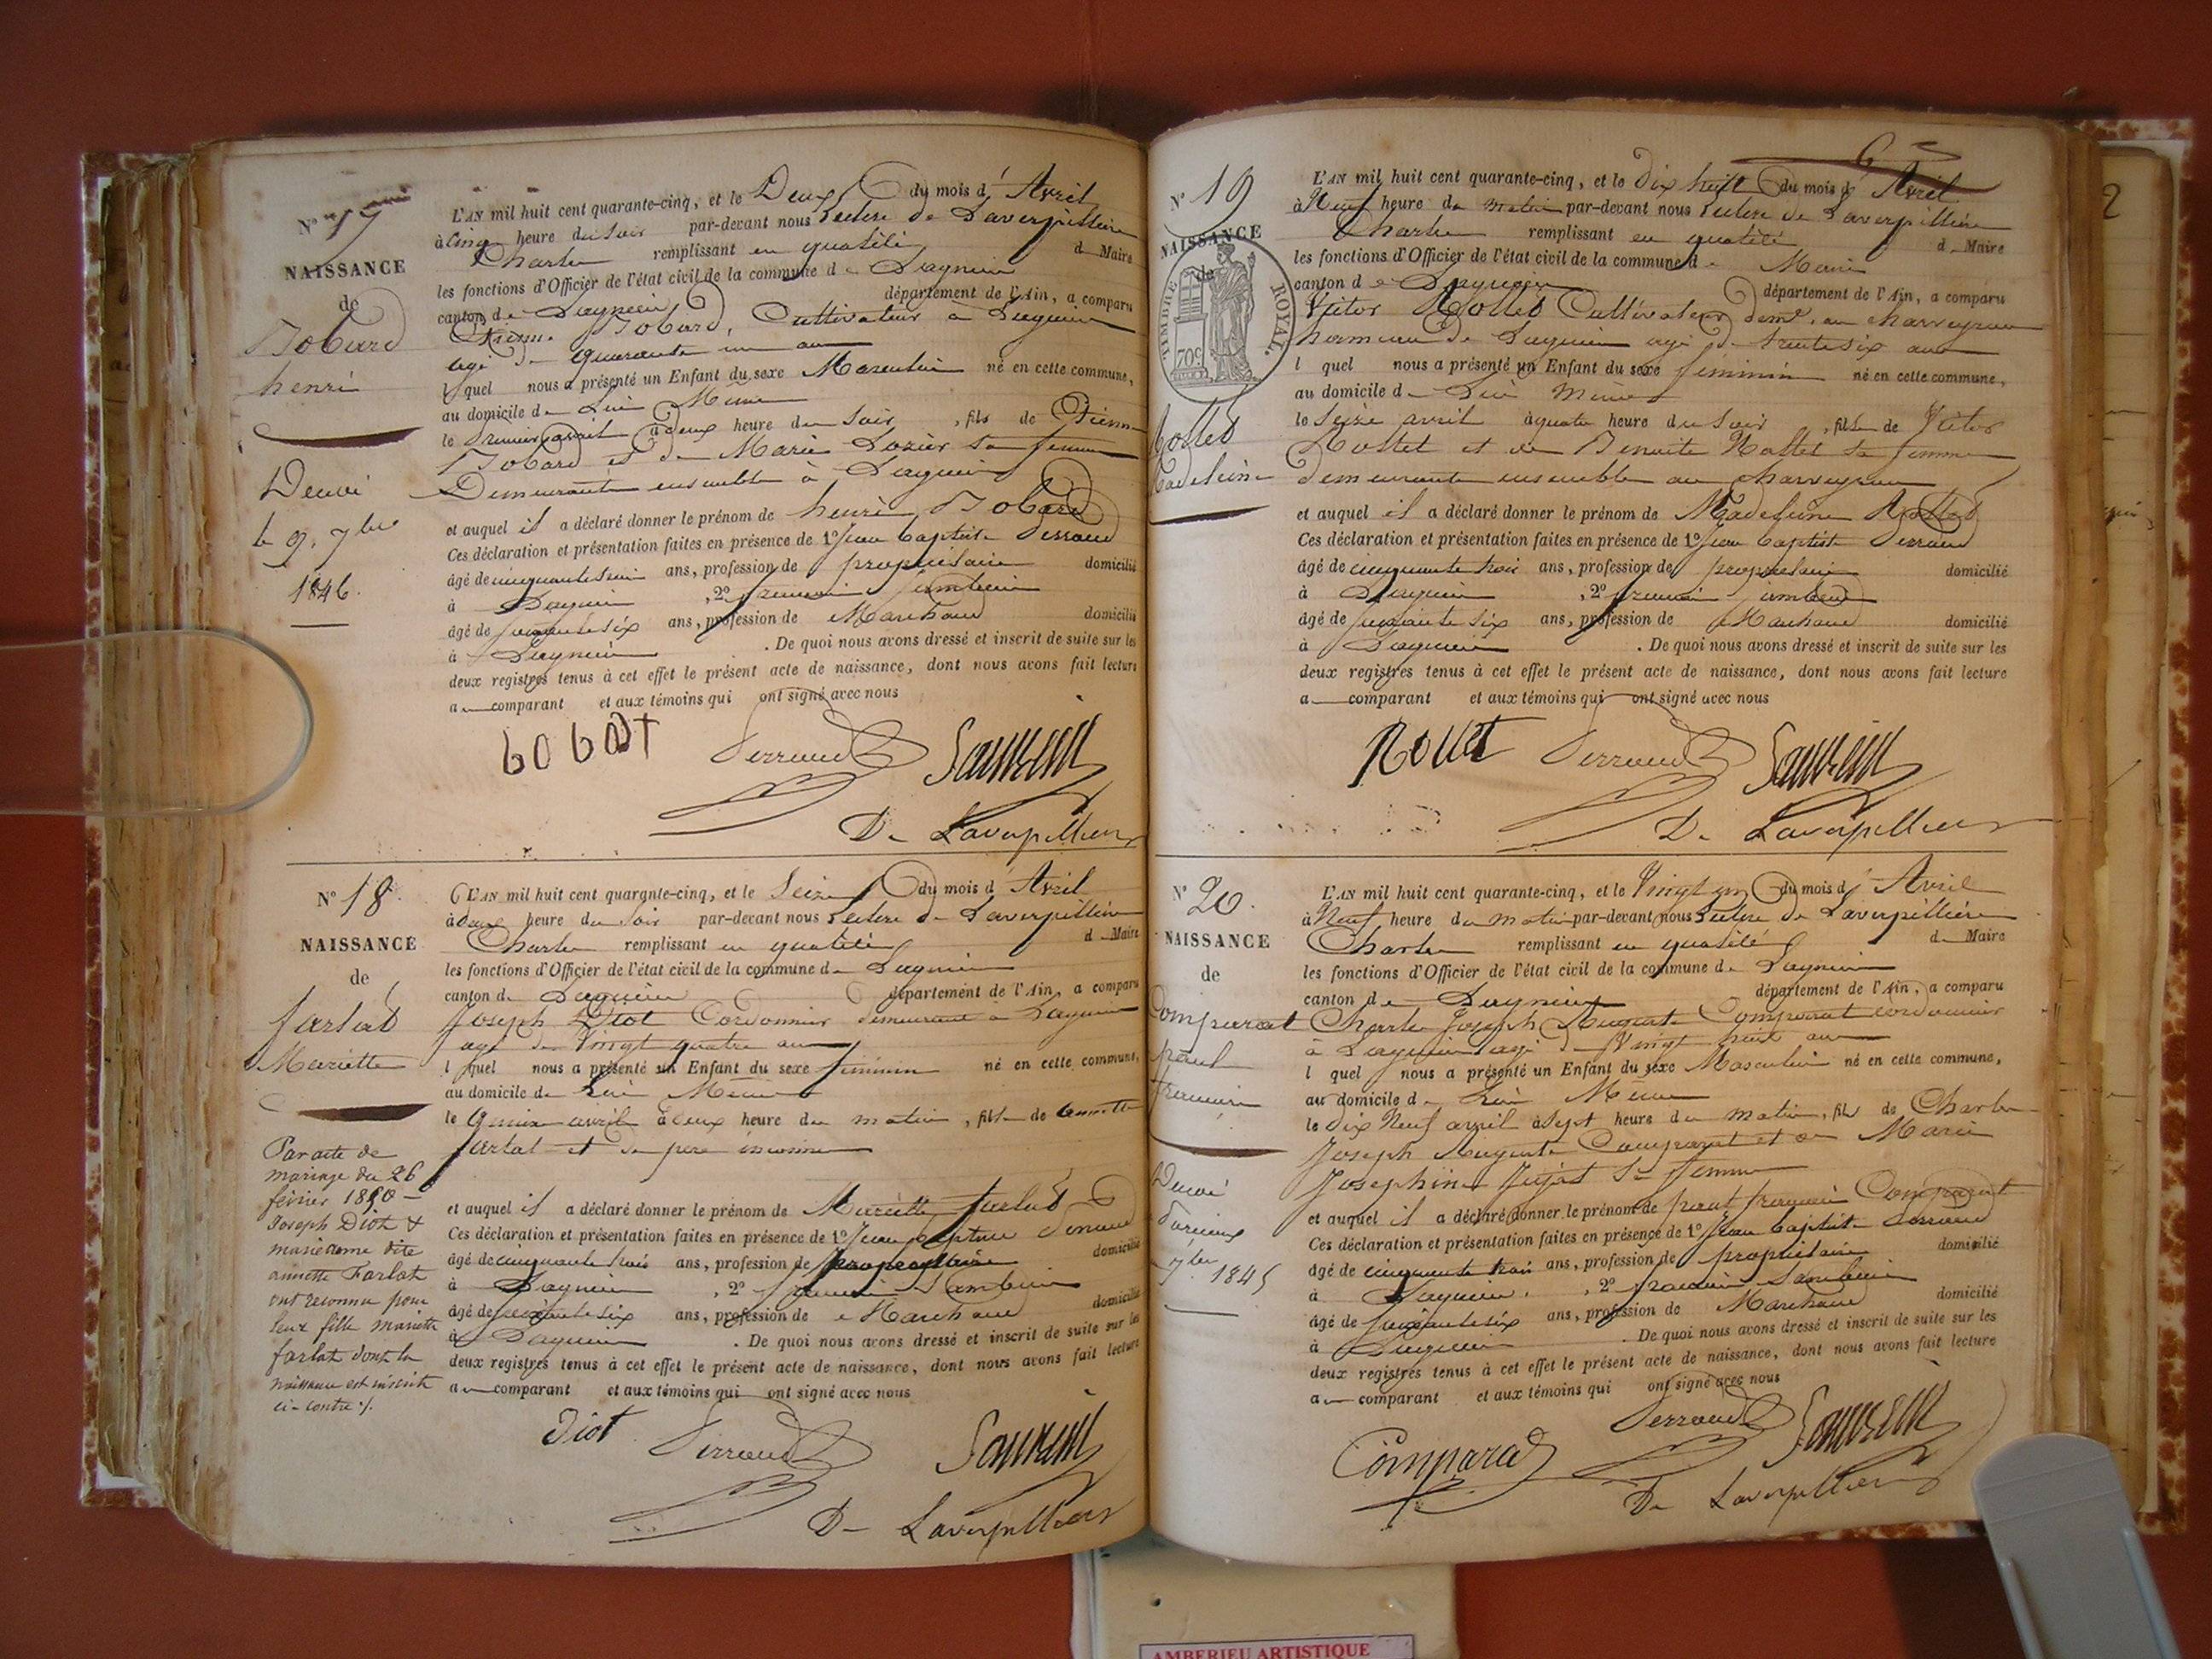 N° 17
NAISSANCE
de
Bobard
henri
Décédé
le 9. 7bre
1846.
L'AN mil huit cent quarante-cinq, et le Deux du mois d' Avril
à cinq heure du soir par-devant nous Leclerc de Laverpillière
Charles remplissant en qualité d Maire
les fonctions d'Officier de l'état civil de la commune de Lagnieu
canton de Lagnieu département de l'Ain, a comparu
Etienne Bobard, Cultivateur à Lagnieu
agé de quarante un ans
lequel nous a présenté un Enfant du sexe Masculin né en cette commune,
au domicile de Lui Même
le premier avril à deux heure du soir, fils de Etienne
Bobard et de Marie Lozier sa femme
Demeurants ensemble à Lagnieu
et auquel il a déclaré donner le prénom de henri Bobard
Ces déclaration et présentation faites en présence de 1° Jean baptiste Perraud
âgé de cinquante trois ans, profession de propriétaire domicilié
à Lagnieu, 2°
âgé de soixante six ans, profession de Marchand domicilié
à Lagnieu. De quoi nous avons dressé et inscrit de suite sur les
deux registres tenus à cet effet le présent acte de naissance, dont nous avons fait lecture
au comparant et aux témoins qui ont signé avec nous
bobart Perraud
De Laverpilliere
N° 18.
NAISSANCE
de
farlat
Mariette
Par acte de
mariage du 26
février 1850 —
Joseph Diot &
marie anne dite
annette Farlat
ont reconnu pour
leur fille mariette
farlat dont la
naissance est inscrite
ci-contre ./.
L'AN mil huit cent quarante-cinq, et le Seize du mois d' Avril
à deux heure du soir par-devant nous Leclerc de Laverpillière
Charles remplissant en qualité d Maire
les fonctions d'Officier de l'état civil de la commune de Lagnieu
canton de Lagnieu département de l'Ain, a comparu
Joseph Diot Cordonnier demeurant à Lagnieu
agé de Vingt quatre ans
lequel nous a présenté un Enfant du sexe féminin né en cette commune,
au domicile de Lui Même
le quinze avril à deux heure du matin, fille de annette
farlat et de père inconnu
et auquel il a déclaré donner le prénom de Mariette farlat
Ces déclaration et présentation faites en présence de 1° Jean baptiste Perraud
âgé de cinquante trois ans, profession de propriétaire domicilié
à Lagnieu, 2°
âgé de soixante six ans, profession de Marchand domicilié
à Lagnieu. De quoi nous avons dressé et inscrit de suite sur les
deux registres tenus à cet effet le présent acte de naissance, dont nous avons fait lecture
au comparant et aux témoins qui ont signé avec nous
Diot Perraud
De Laverpilliere
6
N° 19
NAISSANCE
de
TIMBRE ROYAL.
70c
Rollet
Madeleine
L'AN mil huit cent quarante-cinq, et le dix huit du mois d' Avril
à Neuf heure du matin par-devant nous Leclerc de Laverpillière
Charles remplissant en qualité d Maire
les fonctions d'Officier de l'état civil de la commune d
canton de Lagnieu département de l'Ain, a comparu
Victor Rollet Cultivateur demt. au charveyron
hameau de Lagnieu agé de trente six ans
lequel nous a présenté un Enfant du sexe féminin né en cette commune,
au domicile de Lui Même
le Seize avril à quatre heure du soir, fille de Victor
Rollet et de Benoite Rollet sa femme
demeurants ensemble au charveyron
et auquel il a déclaré donner le prénom de Madeleine Rollet
Ces déclaration et présentation faites en présence de 1° Jean baptiste Perraud
âgé de cinquante trois ans, profession de propriétaire domicilié
à Lagnieu, 2°
âgé de soixante six ans, profession de Marchand domicilié
à Lagnieu. De quoi nous avons dressé et inscrit de suite sur les
deux registres tenus à cet effet le présent acte de naissance, dont nous avons fait lecture
au comparant et aux témoins qui ont signé avec nous
Rollet Perraud
De Laverpilliere
N° 20.
NAISSANCE
de
Comparat
paul
françois
Décédé
7bre 1845
L'AN mil huit cent quarante-cinq, et le Vingt un du mois d' Avril
à Neuf heure du matin par-devant nous Leclerc de Laverpillière
Charles remplissant en qualité de Maire
les fonctions d'Officier de l'état civil de la commune de Lagnieu
canton de Lagnieu département de l'Ain, a comparu
Charles Joseph Auguste Comparat cordonnier
à Lagnieu agé de Vingt huit ans
lequel nous a présenté un Enfant du sexe Masculin né en cette commune,
au domicile de Lui Même
le dix Neuf avril à sept heure du matin, fils de Charles
Joseph Auguste Comparat et de Marie
Josephine Jujat sa femme
et auquel il a déclaré donner le prénom de paul françois Comparat
Ces déclaration et présentation faites en présence de 1° Jean baptiste Perraud
âgé de cinquante trois ans, profession de propriétaire domicilié
à Lagnieu, 2°
âgé de soixante six ans, profession de Marchand domicilié
à Lagnieu. De quoi nous avons dressé et inscrit de suite sur les
deux registres tenus à cet effet le présent acte de naissance, dont nous avons fait lecture
au comparant et aux témoins qui ont signé avec nous
Comparat Perraud
De Laverpilliere
2
AMBERIEU ARTISTIQUE